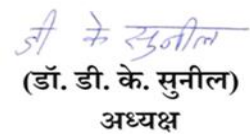 डी के सुनील
(डॉ. डी. के. सुनील)
अध्यक्ष